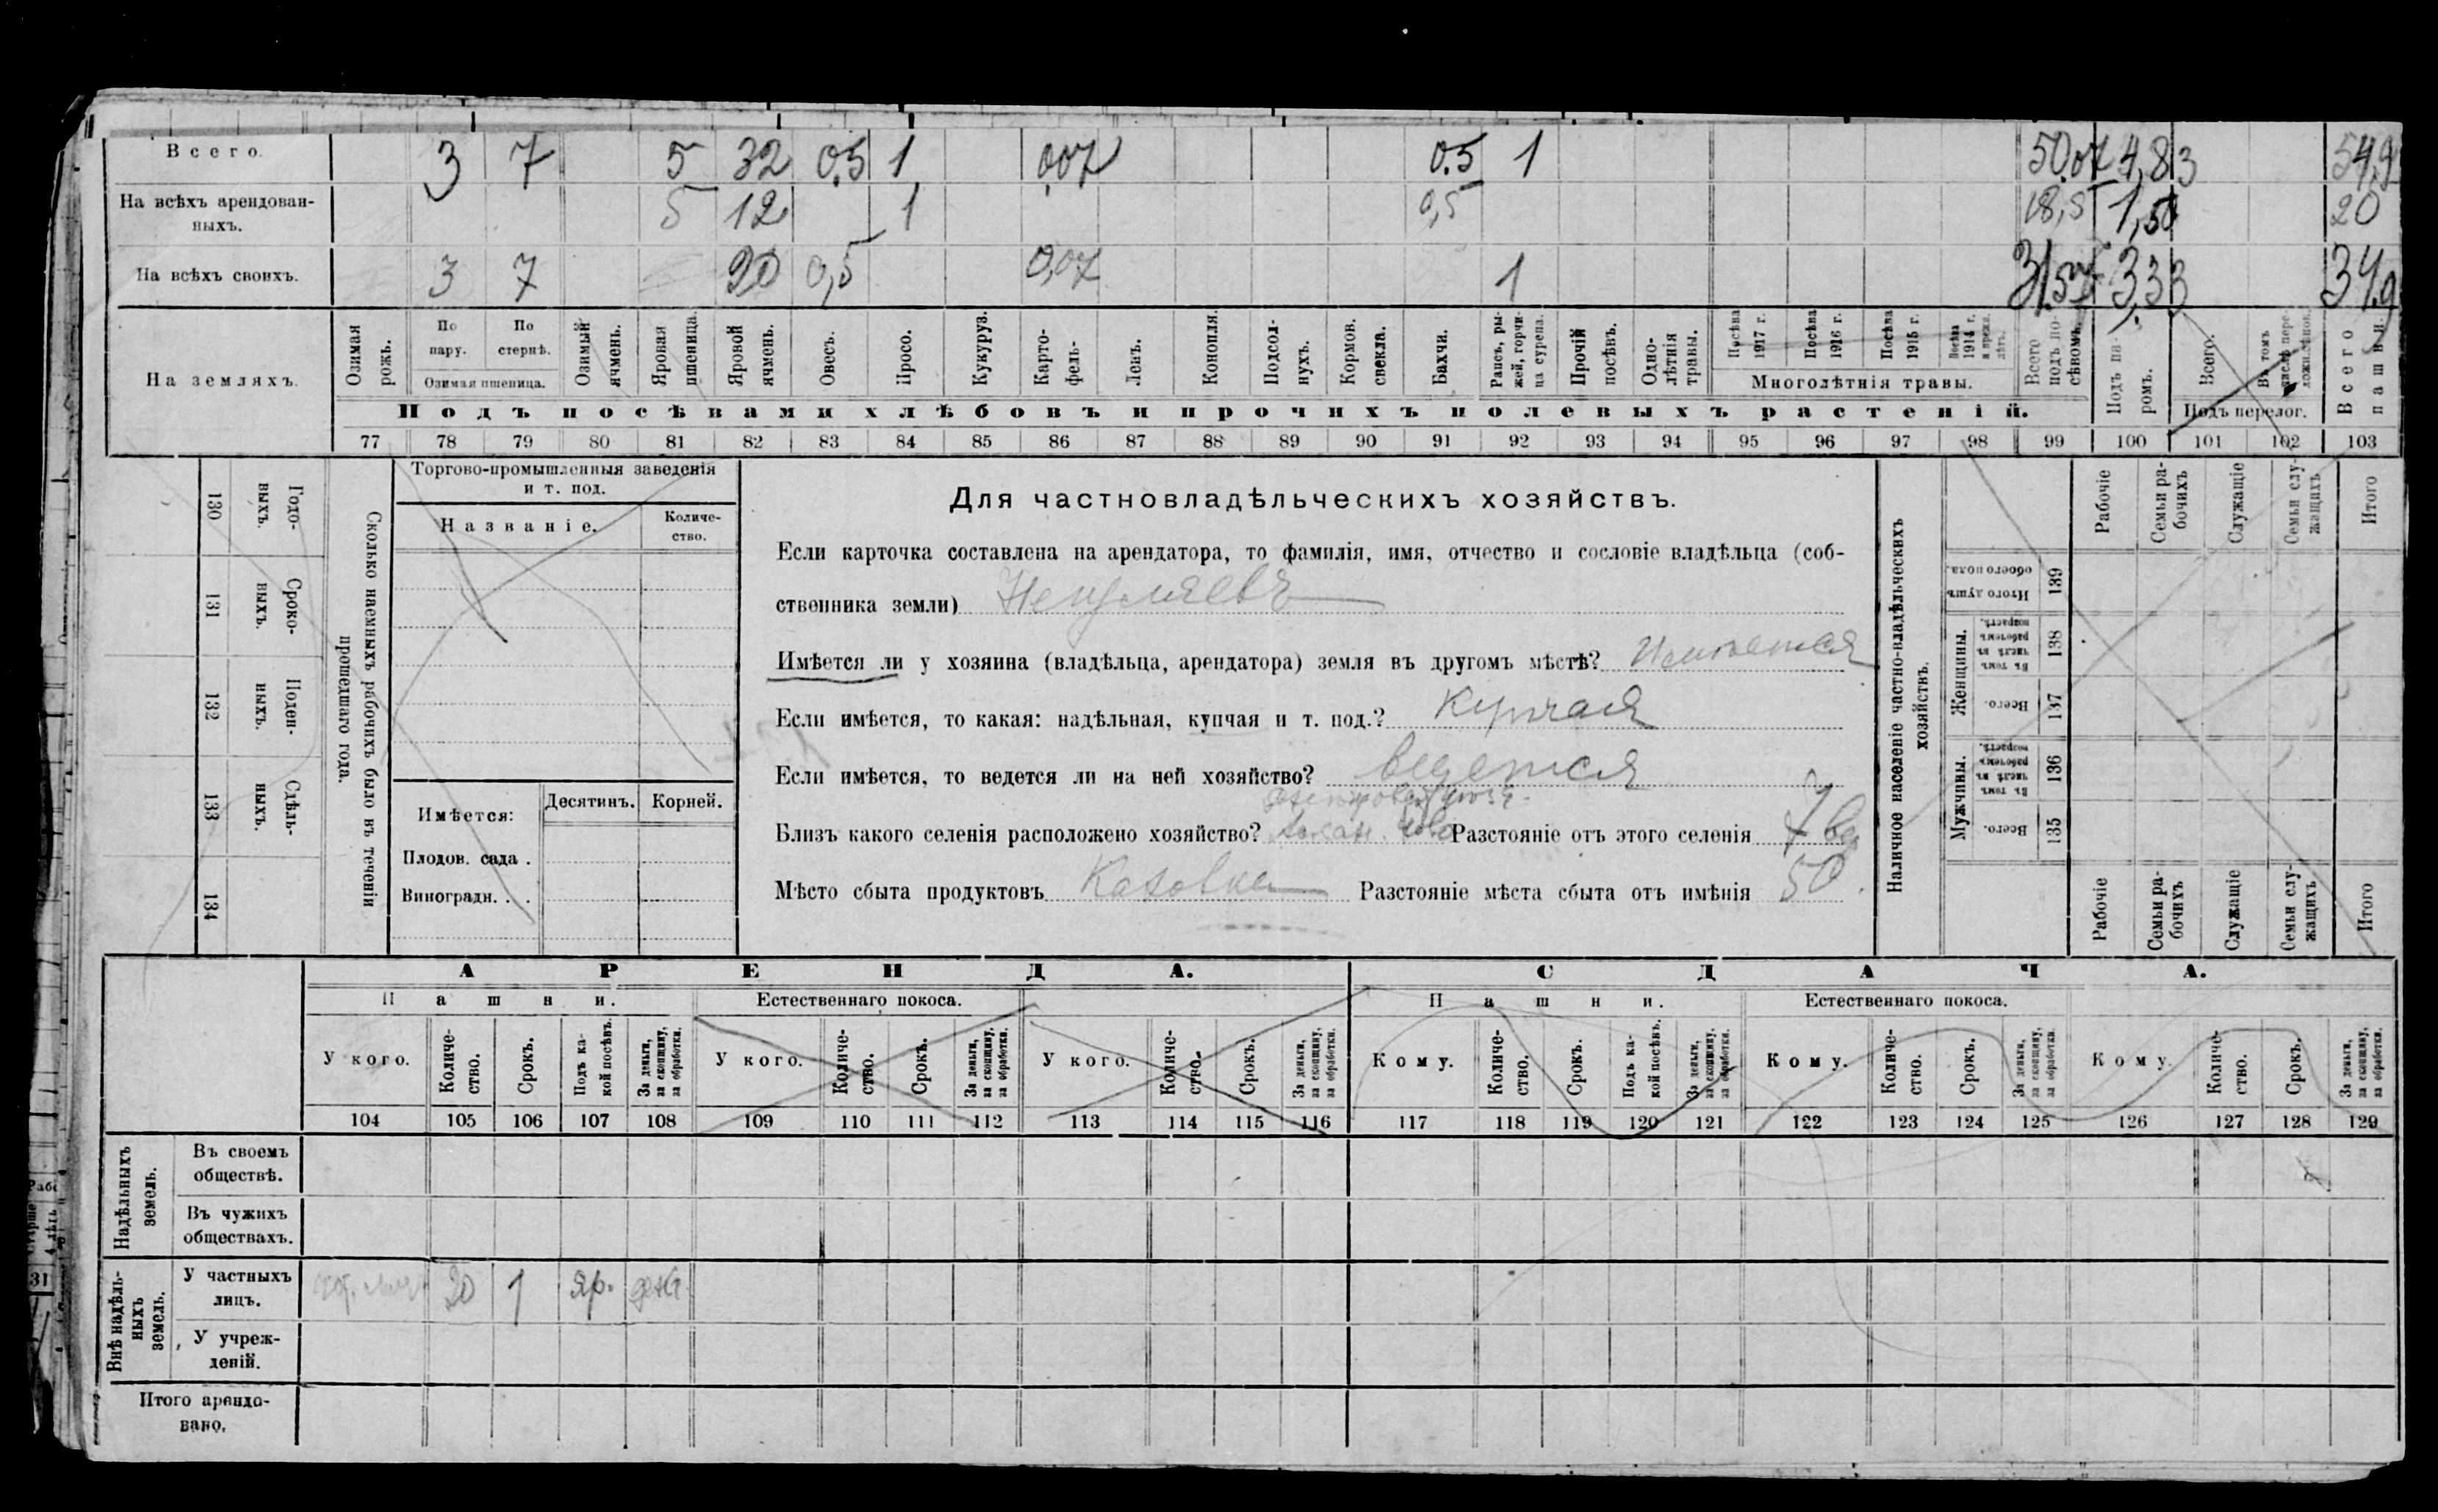 Всего. 3 7 5 32 0.5 1 0,07 0.5 1 50.07 4,83 54,9
На всѣхъ арендован-
ныхъ. 5 12 1 0,5 18,5 1,50 20
На всѣхъ своихъ. 3 7 20 0,5 0,07 1 31.57 3,33 34.9
На земляхъ.
Озимая рожь.
По пару.
По стернѣ.
Озимая пшеница.
Озимый ячмень.
Яровая пшеница.
Яровой ячмень.
Овесъ.
Просо.
Кукуруз.
Карто-
фель.
Ленъ.
Конопля.
Подсол-
нухъ.
Кормов. свекла.
Бахчи.
Рапсъ, ры-
жей, горчи-
ца сурепа.
Прочій посѣвъ.
Одно-
лѣтнія травы.
Посѣва 1917 г.
Посѣва 1916 г.
Посѣва 1915 г.
Посѣва 1914 г. и прежн. лѣтъ.
Многолѣтнія травы.
Всего подъ по-
сѣвомъ.
Подъ па-
ромъ.
Всего.
Въ томъ числѣ пере-
лож.
Подъ перелог.
Всего пашни.
Подъ посѣвами хлѣбовъ и прочихъ полевыхъ растеній.
77 78 79 80 81 82 83 84 85 86 87 88 89 90 91 92 93 94 95 96 97 98 99 100 101 102 103
Сколько наемныхъ рабочихъ было въ теченіи
прошедшаго года.
Годо-
выхъ.
130
Сроко-
выхъ.
131
Поден-
ныхъ.
132
Сдѣль-
ныхъ.
133
134
Торгово-промышленныя заведенія
и т. под.
Названіе.
Количе-
ство.
Имѣется:
Десятинъ. Корней.
Плодов. сада .
Виноградн. . .
Для частновладѣльческихъ хозяйствъ.
Если карточка составлена на арендатора, то фамилія, имя, отчество и сословіе владѣльца (соб-
ственника земли)
Имѣется ли у хозяина (владѣльца, арендатора) земля въ другомъ мѣстѣ? Имѣется
Если имѣется, то какая: надѣльная, купчая и т. под.? Купчая
Если имѣется, то ведется ли на ней хозяйство? ведется
Близъ какого селенія расположено хозяйство? Разстояніе отъ этого селенія 7 в
Мѣсто сбыта продуктовъ Каховка Разстояніе мѣста сбыта отъ имѣнія 50.
Наличное населеніе частно-владѣльческихъ
хозяйствъ.
Рабочіе
Семьи ра-
бочихъ
Служащіе
Семьи слу-
жащихъ
Итого
Итого душъ обоего пола.
139
Женщины.
Въ томъ числѣ въ рабочемъ возрастѣ.
138
Всего.
137
Мужчины.
Въ томъ числѣ въ рабочемъ возрастѣ.
136
Всего.
135
Рабочіе
Семьи ра-
бочихъ
Служащіе
Семьи слу-
жащихъ
Итого
АРЕНДА. СДАЧА.
Пашни. Естественнаго покоса. Пашни. Естественнаго покоса.
У кого.
Количе-
ство.
Срокъ.
Подъ ка-
кой посѣвъ.
За деньги,
за скопщину,
за обработки.
У кого.
Количе-
ство.
Срокъ.
За деньги,
за скопщину,
за обработки.
У кого.
Количе-
ство.
Срокъ.
За деньги,
за скопщину,
за обработки.
Кому.
Количе-
ство.
Срокъ.
Подъ ка-
кой посѣвъ.
За деньги,
за скопщину,
за обработки.
Кому.
Количе-
ство.
Срокъ.
За деньги,
за скопщину,
за обработки.
Кому.
Количе-
ство.
Срокъ.
За деньги,
за скопщину,
за обработки.
104 105 106 107 108 109 110 111 112 113 114 115 116 117 118 119 120 121 122 123 124 125 126 127 128 129
Надѣльныхъ
земель.
Въ своемъ
обществѣ.
Въ чужихъ
обществахъ.
Внѣ надѣль-
ныхъ
земель.
У частныхъ
лицъ. 20 1 яр.
У учреж-
деній.
Итого арендо-
вано.
31